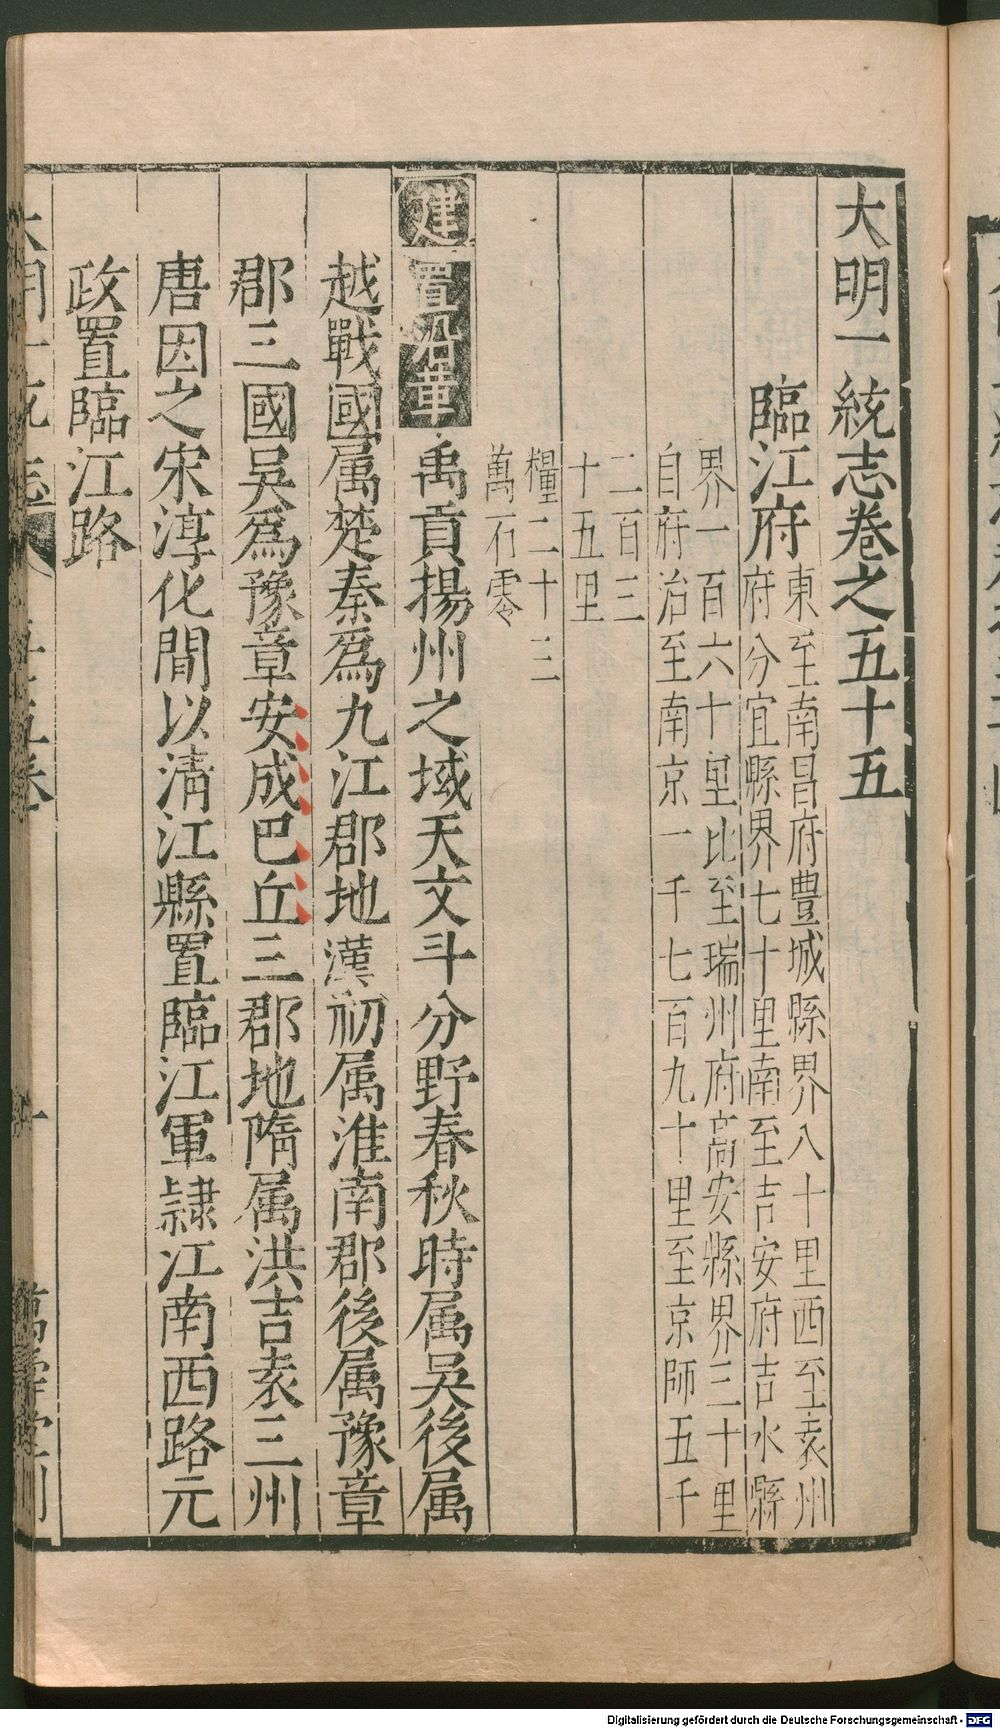 大明一統志卷之五十五
臨江府
東至南昌府豊城縣界八十里西至袁州
府分宜縣界七十里南至吉安府吉水縣
界一百六十里北至瑞州府高安縣界三十里
自府治至南京一千七百九十里至京師五千
二百三
十五里
糧二十三
萬石零
建置沿革
禹貢揚州之域天文斗分野春秋時属吳後属
越戰國属楚秦爲九江郡地漢初属淮南郡後属豫章
郡三國吳爲豫章安成巴丘三郡地隋属洪吉袁三州
唐因之宋淳化間以清江縣置臨江軍隷江南西路元
政置臨江路
Digitalisierung gefördert durch die Deutsche Forschungsgemeinschaft - DFG